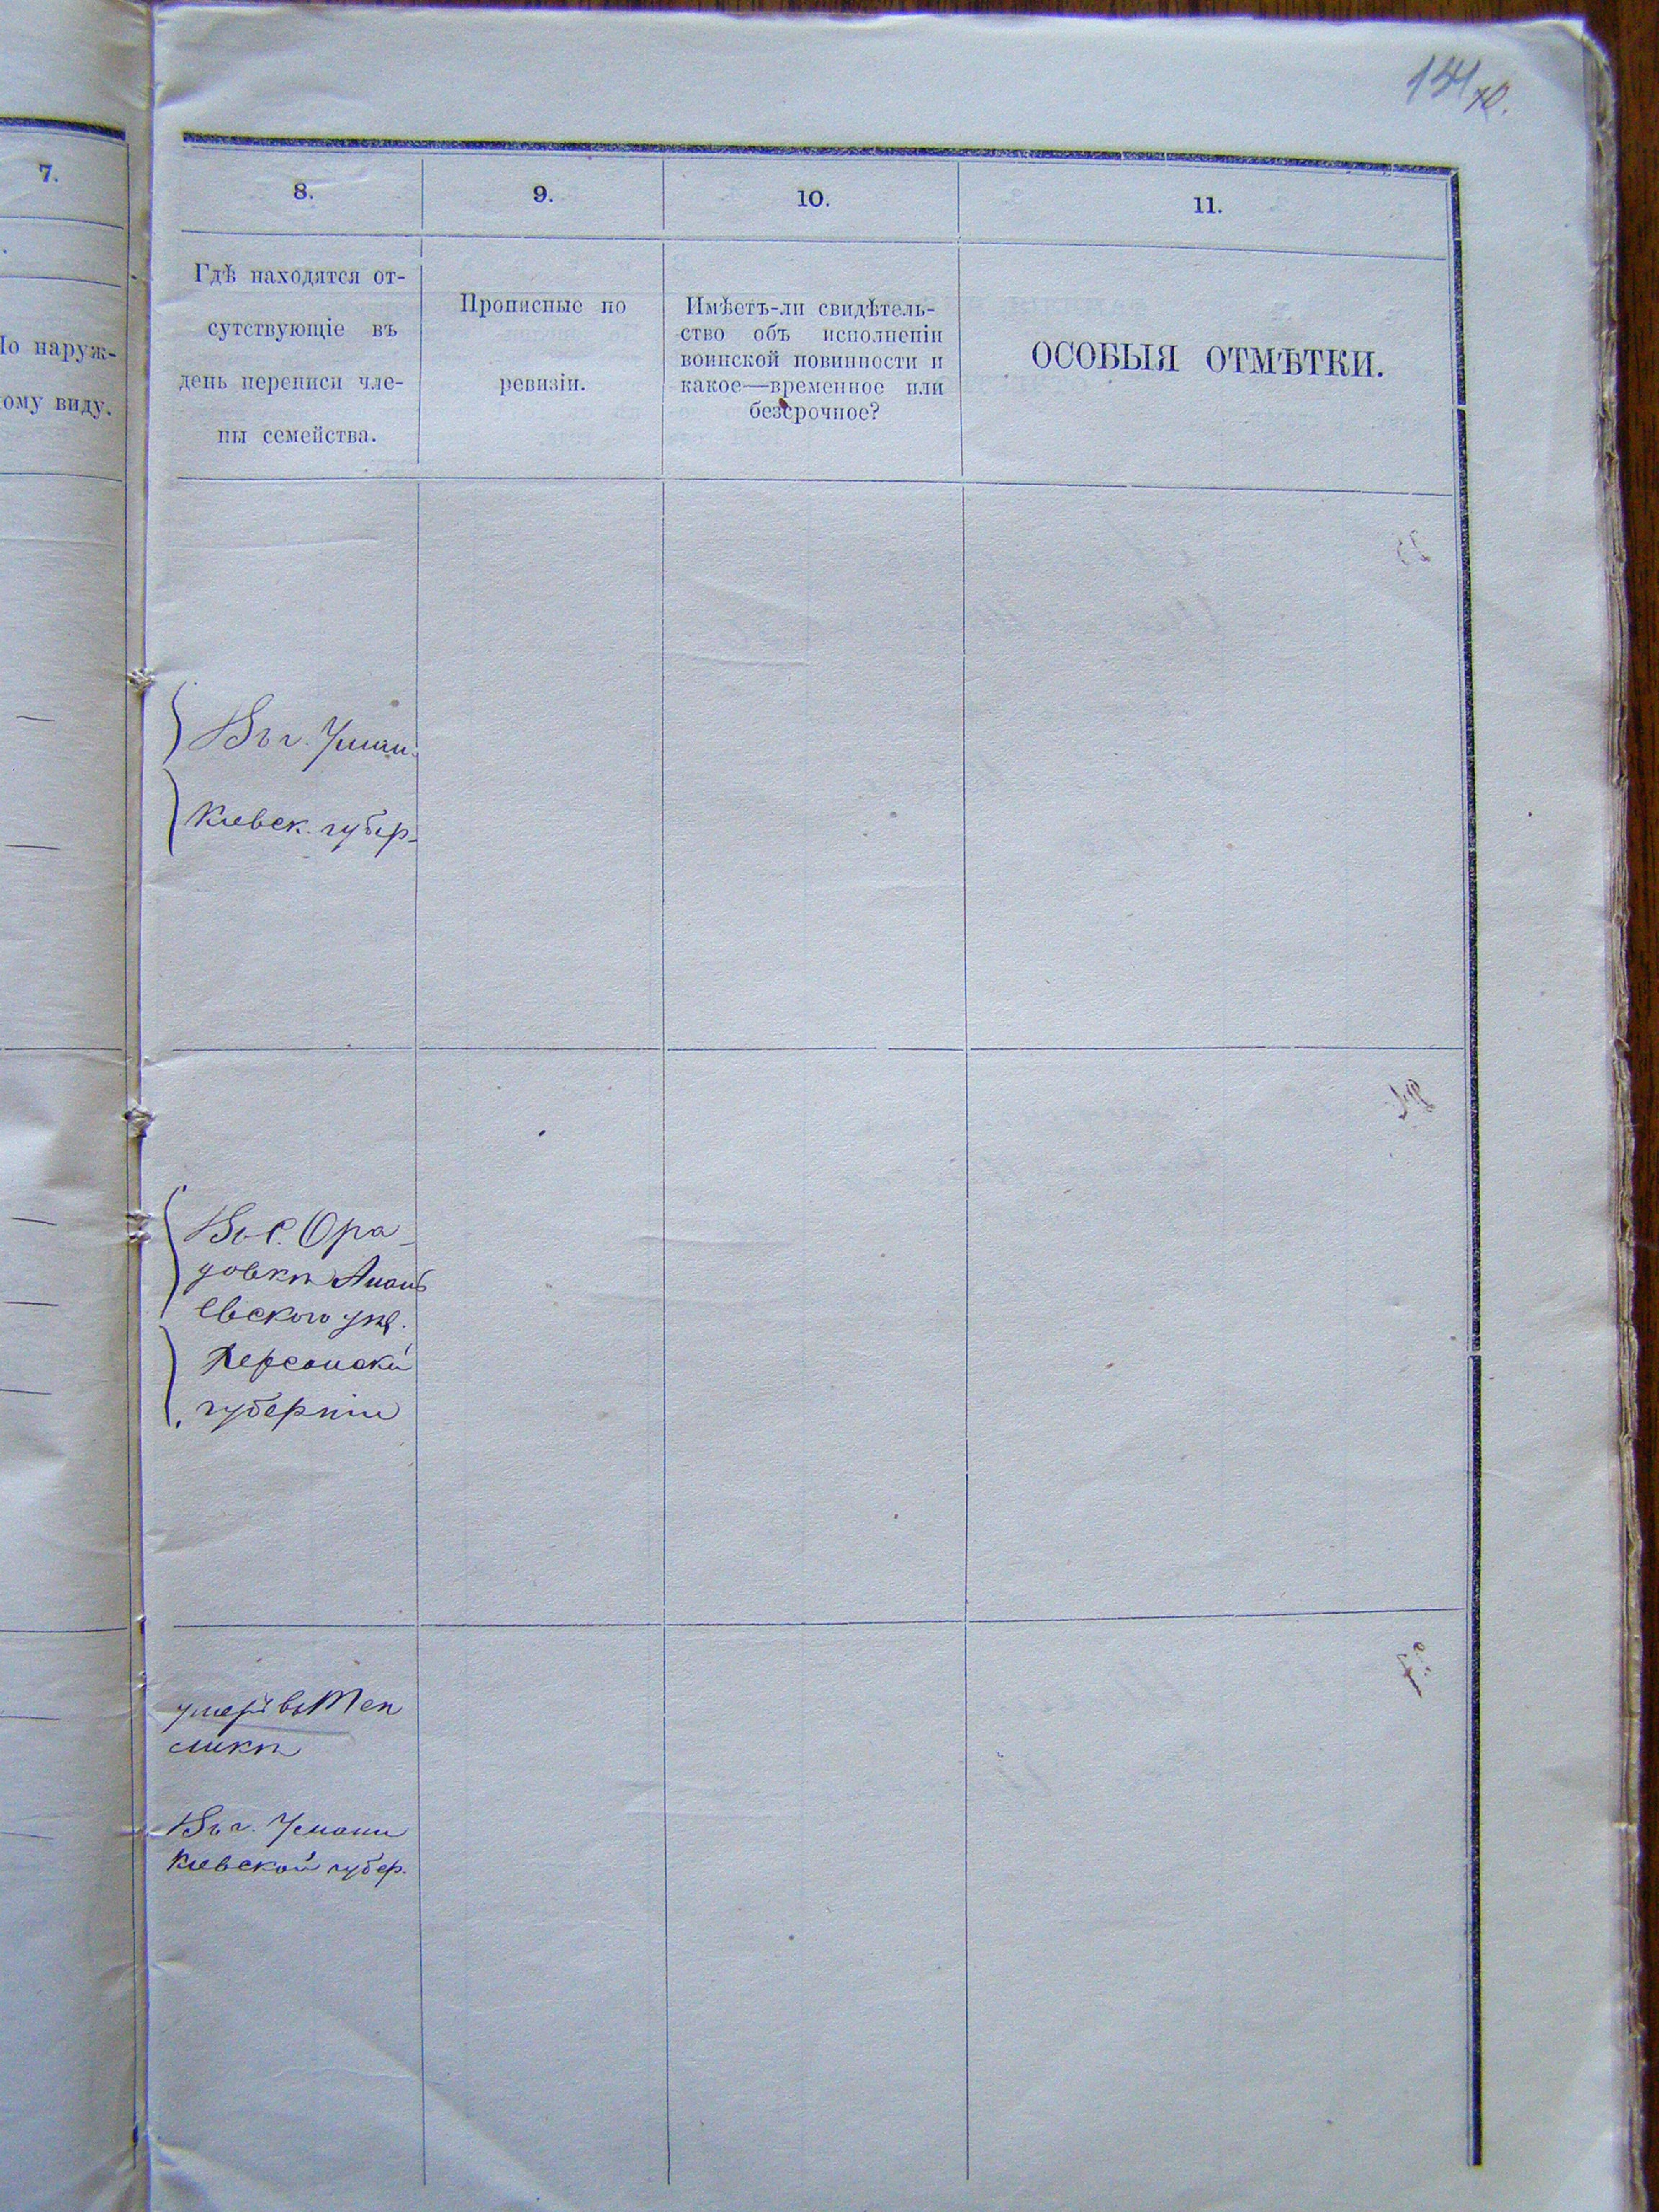 141
7.
8.
9.
10.
11.
о наруж-
ому виду.
Гдѣ находятся от-
сутствующіе въ
день переписи чле-
ны семейства.
Прописные по
ревизіи.
Имѣетъ-ли свидѣтель-
ство объ исполненіи
воинской повинности и
какое—временное или
безсрочное?
ОСОБЫЯ ОТМѢТКИ.
Въ г. Уман.
Киевск. губер-
Въ с. Ора-
довкѣ Анань
евского уѣз.
Херсонской
губерніи
умеръ въ Теп
ликѣ
Въ г. Умани
Киевской губер.